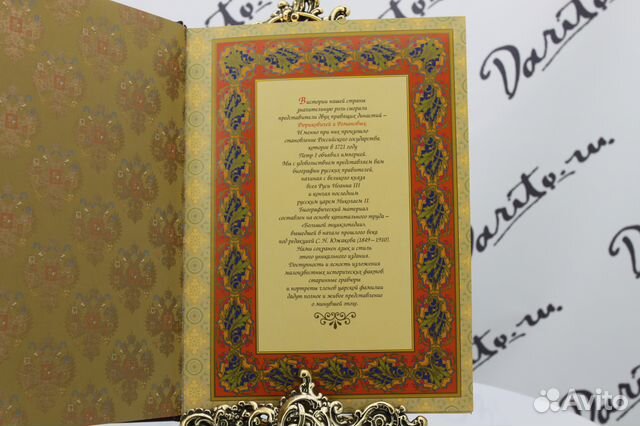 В истории нашей страны
значительную роль сыграли
представители двух правящих династий –
Рюриковичей и Романовых.
Именно при них произошло
становление Российского государства,
которое в 1721 году
Петр I объявил империей.
Мы с удовольствием представляем вам
биографии русских правителей,
начиная с великого князя
всея Руси Иоанна III
и кончая последним
русским царем Николаем II.
Биографический материал
составлен на основе капитального труда –
«Большой энциклопедии»,
вышедшей в начале прошлого века
под редакцией С. Н. Южакова (1849–1910).
Нами сохранен язык и стиль
этого уникального издания.
Доступность и ясность изложения
малоизвестных исторических фактов,
старинные гравюры
и портреты членов царской фамилии
дадут полное и живое представление
о минувшей эпохе.
Darito.ru
Darito.ru
Darito.ru
Avito